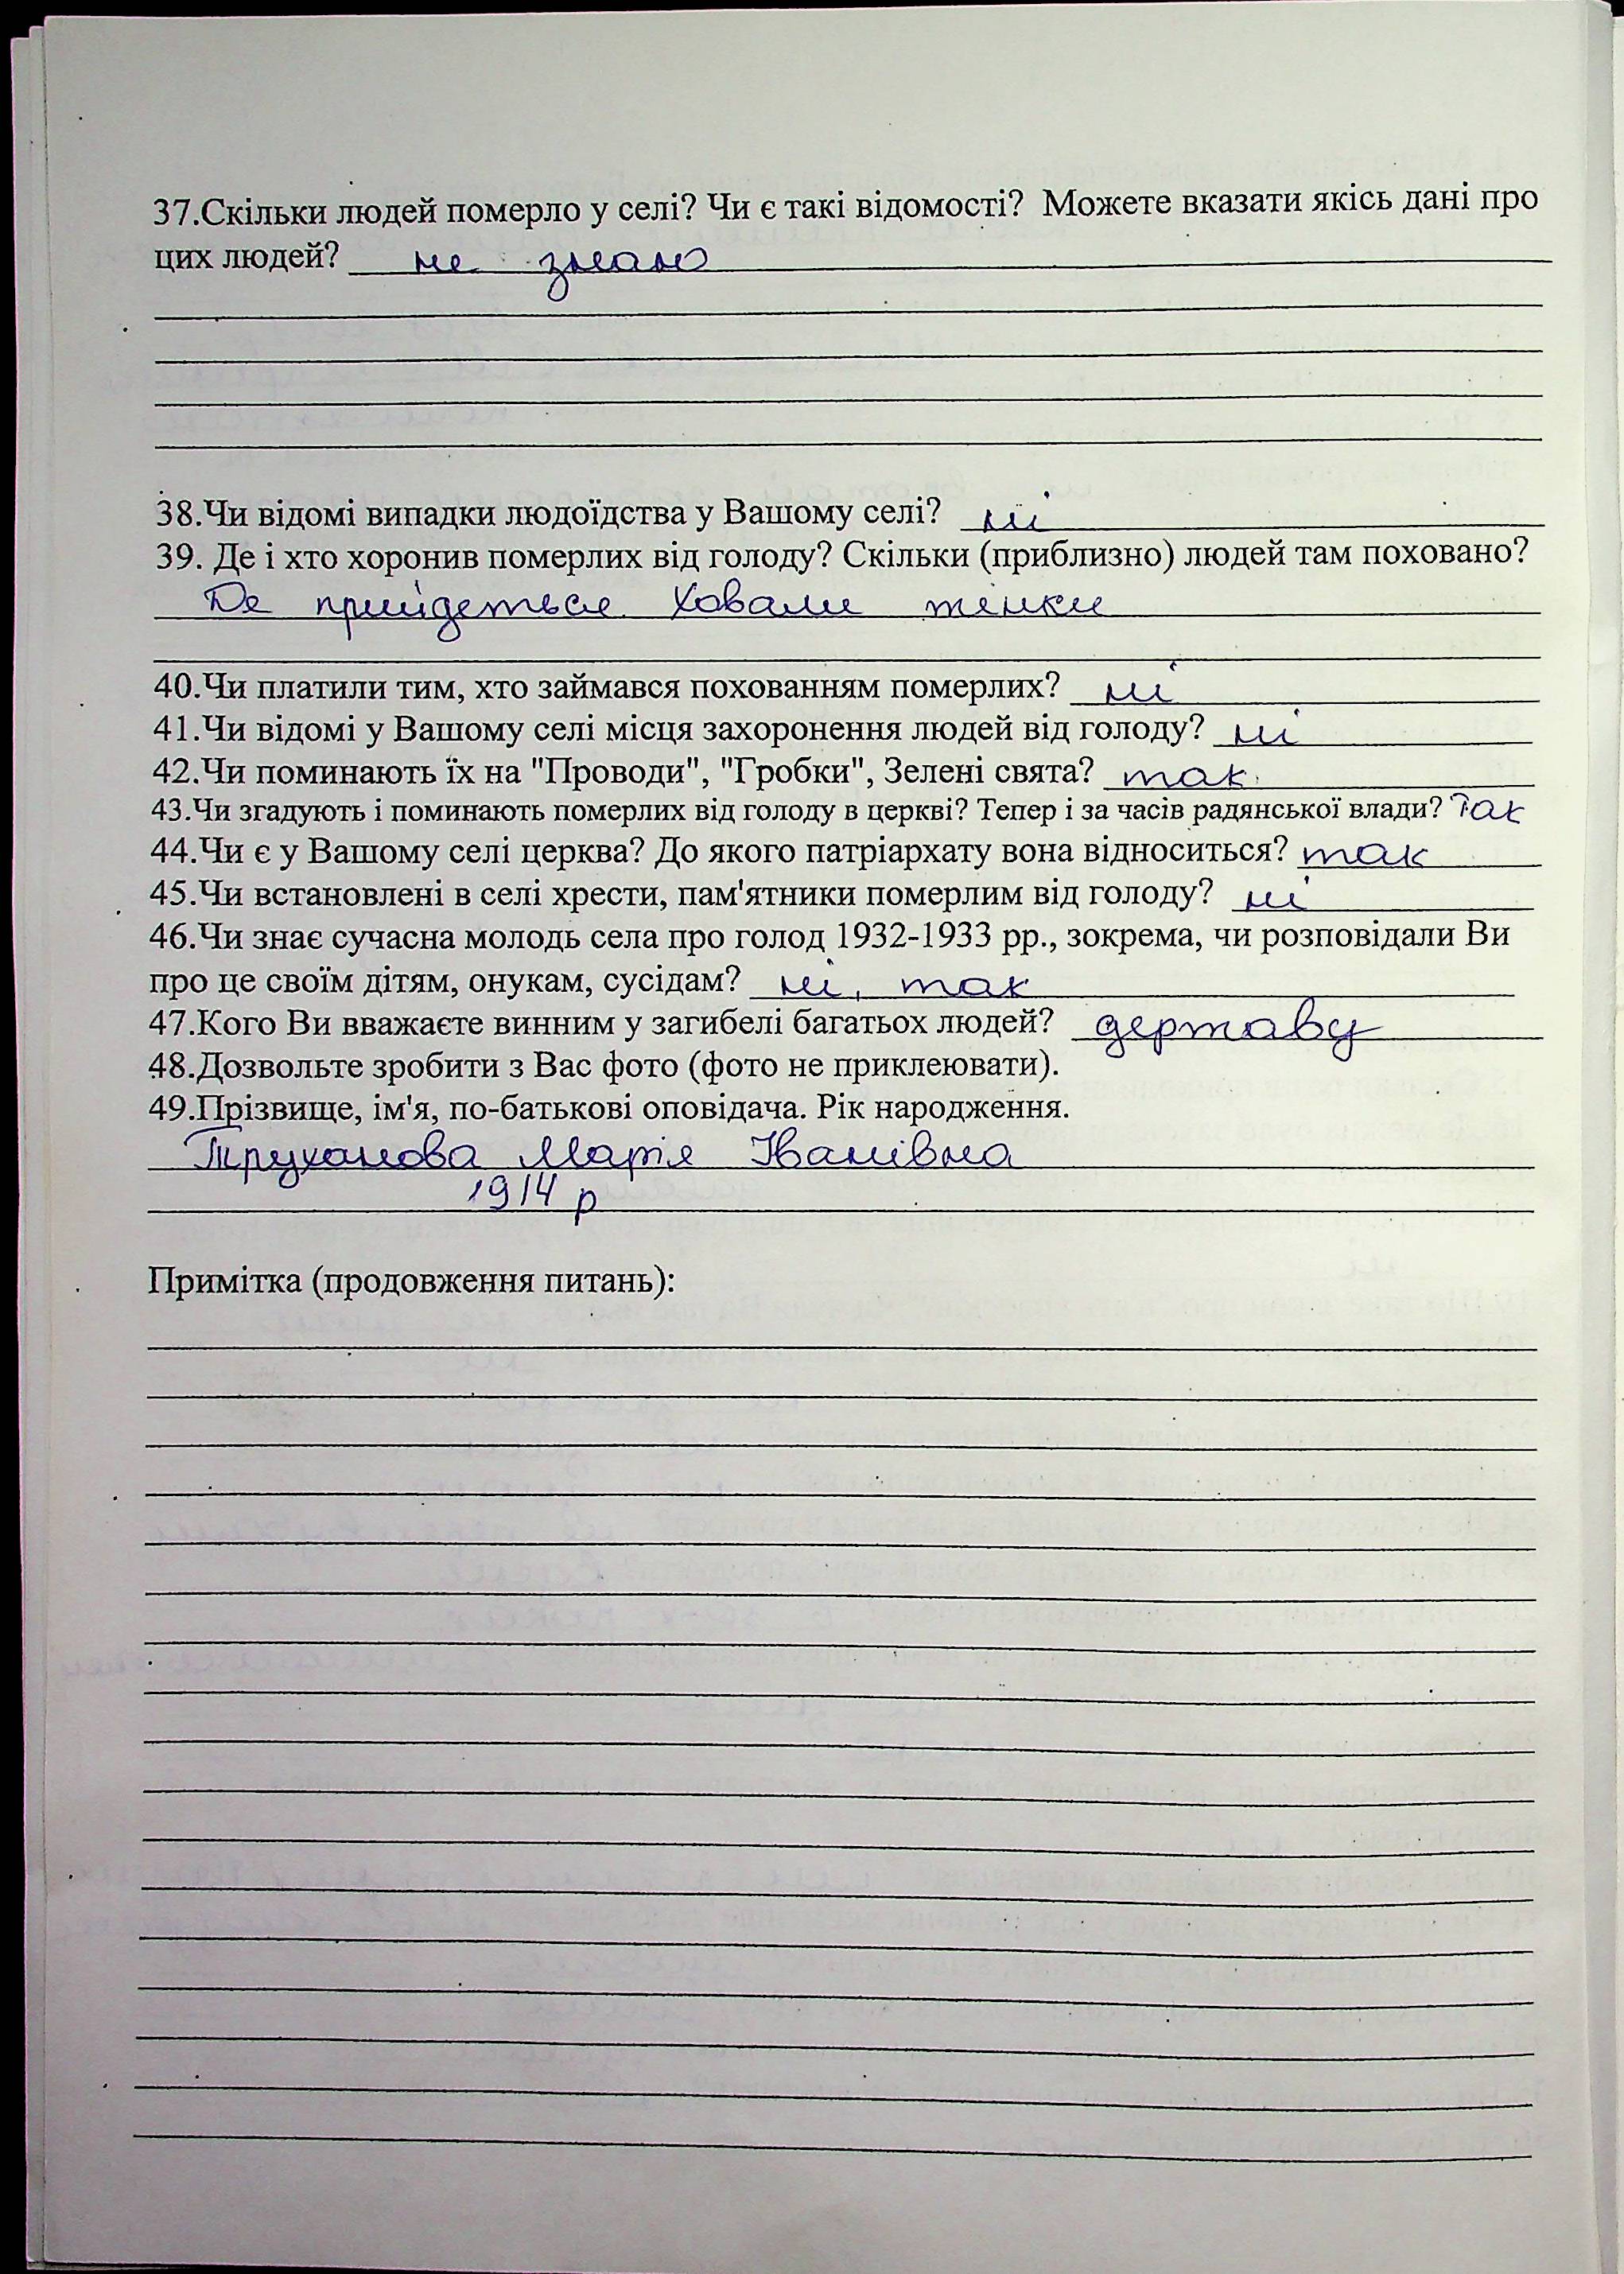 37.Скільки людей померло у селі? Чи є такі відомості? Можете вказати якісь дані про
цих людей? не знаю
38.Чи відомі випадки людоїдства у Вашому селі? ні
39. Де і хто хоронив померлих від голоду? Скільки (приблизно) людей там поховано?
Де прийдеться. Ховали жінки
40.Чи платили тим, хто займався похованням померлих? ні
41.Чи відомі у Вашому селі місця захоронення людей від голоду? ні
42.Чи поминають їх на "Проводи", "Гробки", Зелені свята? так
43.Чи згадують і поминають померлих від голоду в церкві? Тепер і за часів радянської влади? Так
44.Чи є у Вашому селі церква? До якого патріархату вона відноситься? так
45.Чи встановлені в селі хрести, пам'ятники померлим від голоду? ні
46.Чи знає сучасна молодь села про голод 1932-1933 рр., зокрема, чи розповідали Ви
про це своїм дітям, онукам, сусідам? ні, так
47.Кого Ви вважаєте винним у загибелі багатьох людей? державу
48.Дозвольте зробити з Вас фото (фото не приклеювати).
49.Прізвище, ім'я, по-батькові оповідача. Рік народження.
Труханова Марія Іванівна
1914 р
Примітка (продовження питань):